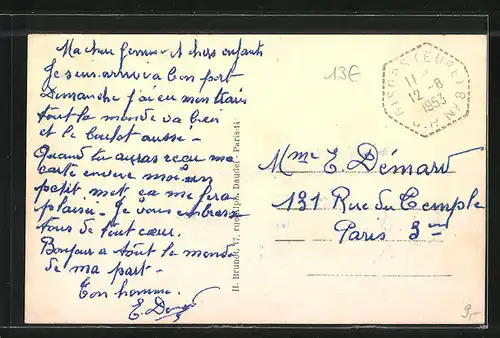 Ma chere femme et chers enfants
Je suis arrivé a bon port
Dimanche j'ai eu mon train
tout la monde va bien
et le boulot aussi -
Quand tu auras recu ma
carte envoie moi un
petit mot ca me fera
plaisir - Je vous embrasse
tous de tout cœur.
Bonjour a tout le monde
de ma part -
Ton homme.
E. Demard
H. Brunot, 47, rue Alph. Daudet - Paris-14
13€
(EURE)
11
12-8
1953
C.P. N°8
Mme E. Démard
131 Rue du Temple
Paris 3me
9,-